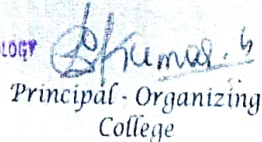 LOGY
Kumar. S
Principal - Organizing
College